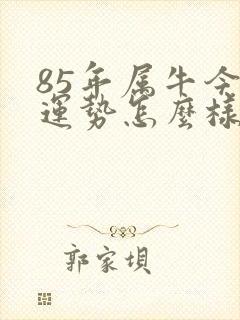 85年属牛今
運勢怎麼樣
郭家垻